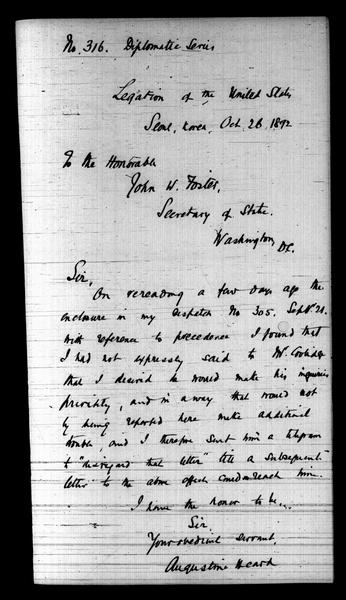 No. 316. Diplomatic Series
Legation of the United States
Seoul, Korea, Oct. 26 1892
To the Honorable
John W. Foster,
Secretary of State.
Washington, D.C.
Sir,
On rereading a few days ago the
enclosure in my Despatch No 305. Sept.
with reference to precedence I found that
I had not expressly said to Mr
that I desired he would make his inquiries
privately, and in a way that would not
by being reported here make additional
trouble, and I therefore sent him a telegram
to "disregard that letter" till a subsequent
letter to the above effect could reach him.
I have the honor to be,
Sir
Your obedient servant,
Augustine Heard